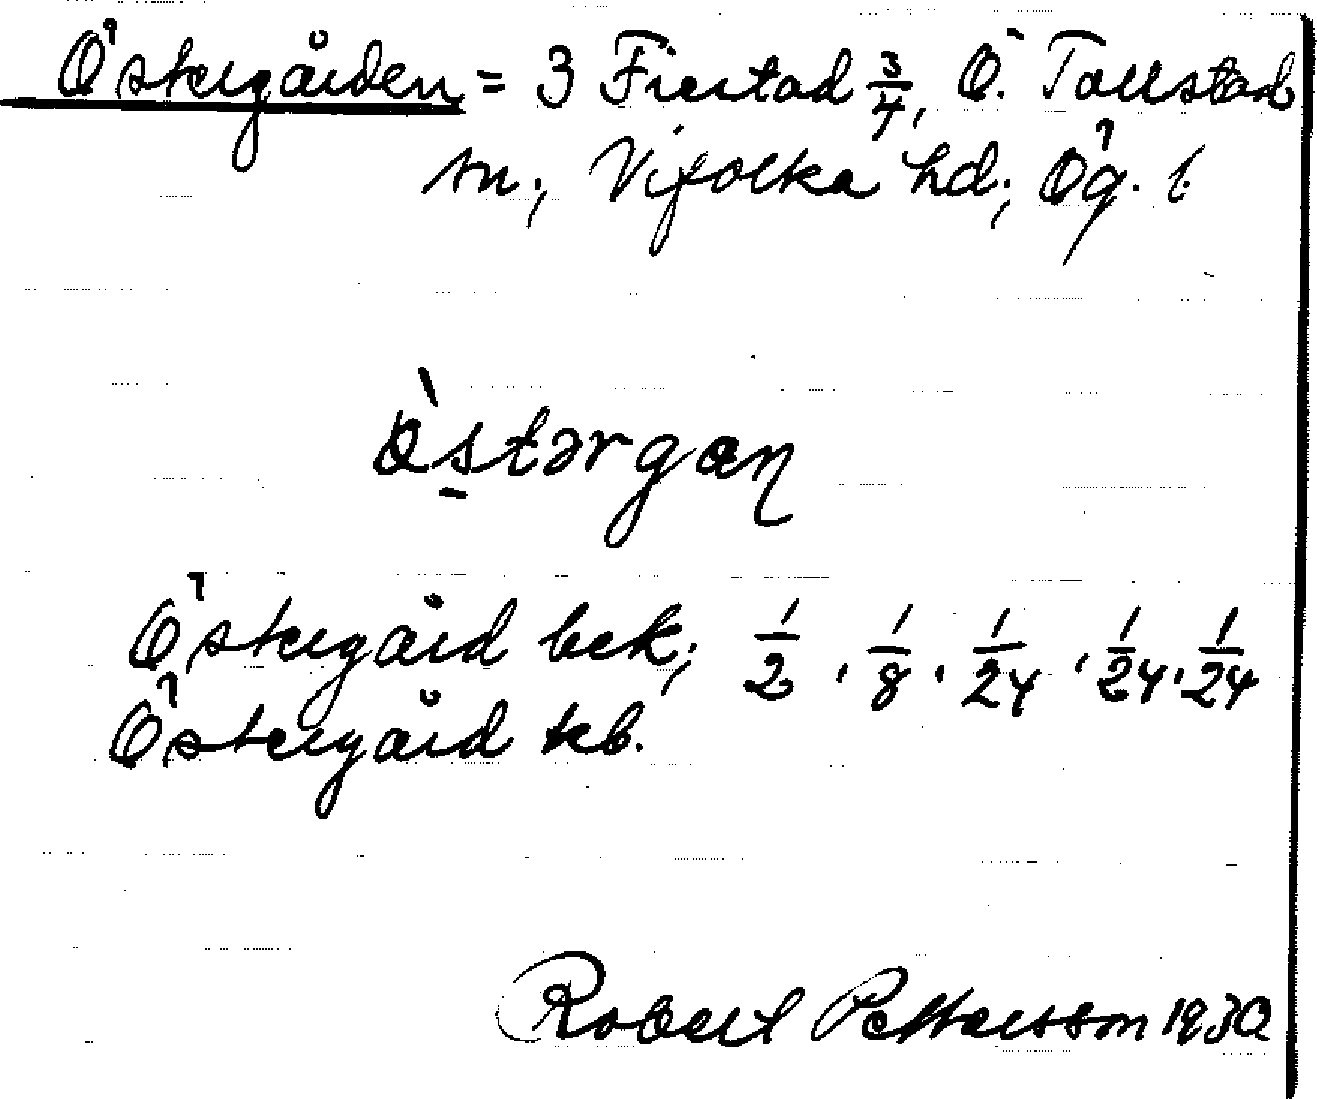 Östergården = 3 Fierstad 3/4, Ö. Tollstad
sn., Vifolka hd., Ög. l.
ò̀stərgaɳ
Östergård bek; 1/2, 1/8, 1/24, 1/24, 1/24
Östergård kb.
Robert Pettersson 1930